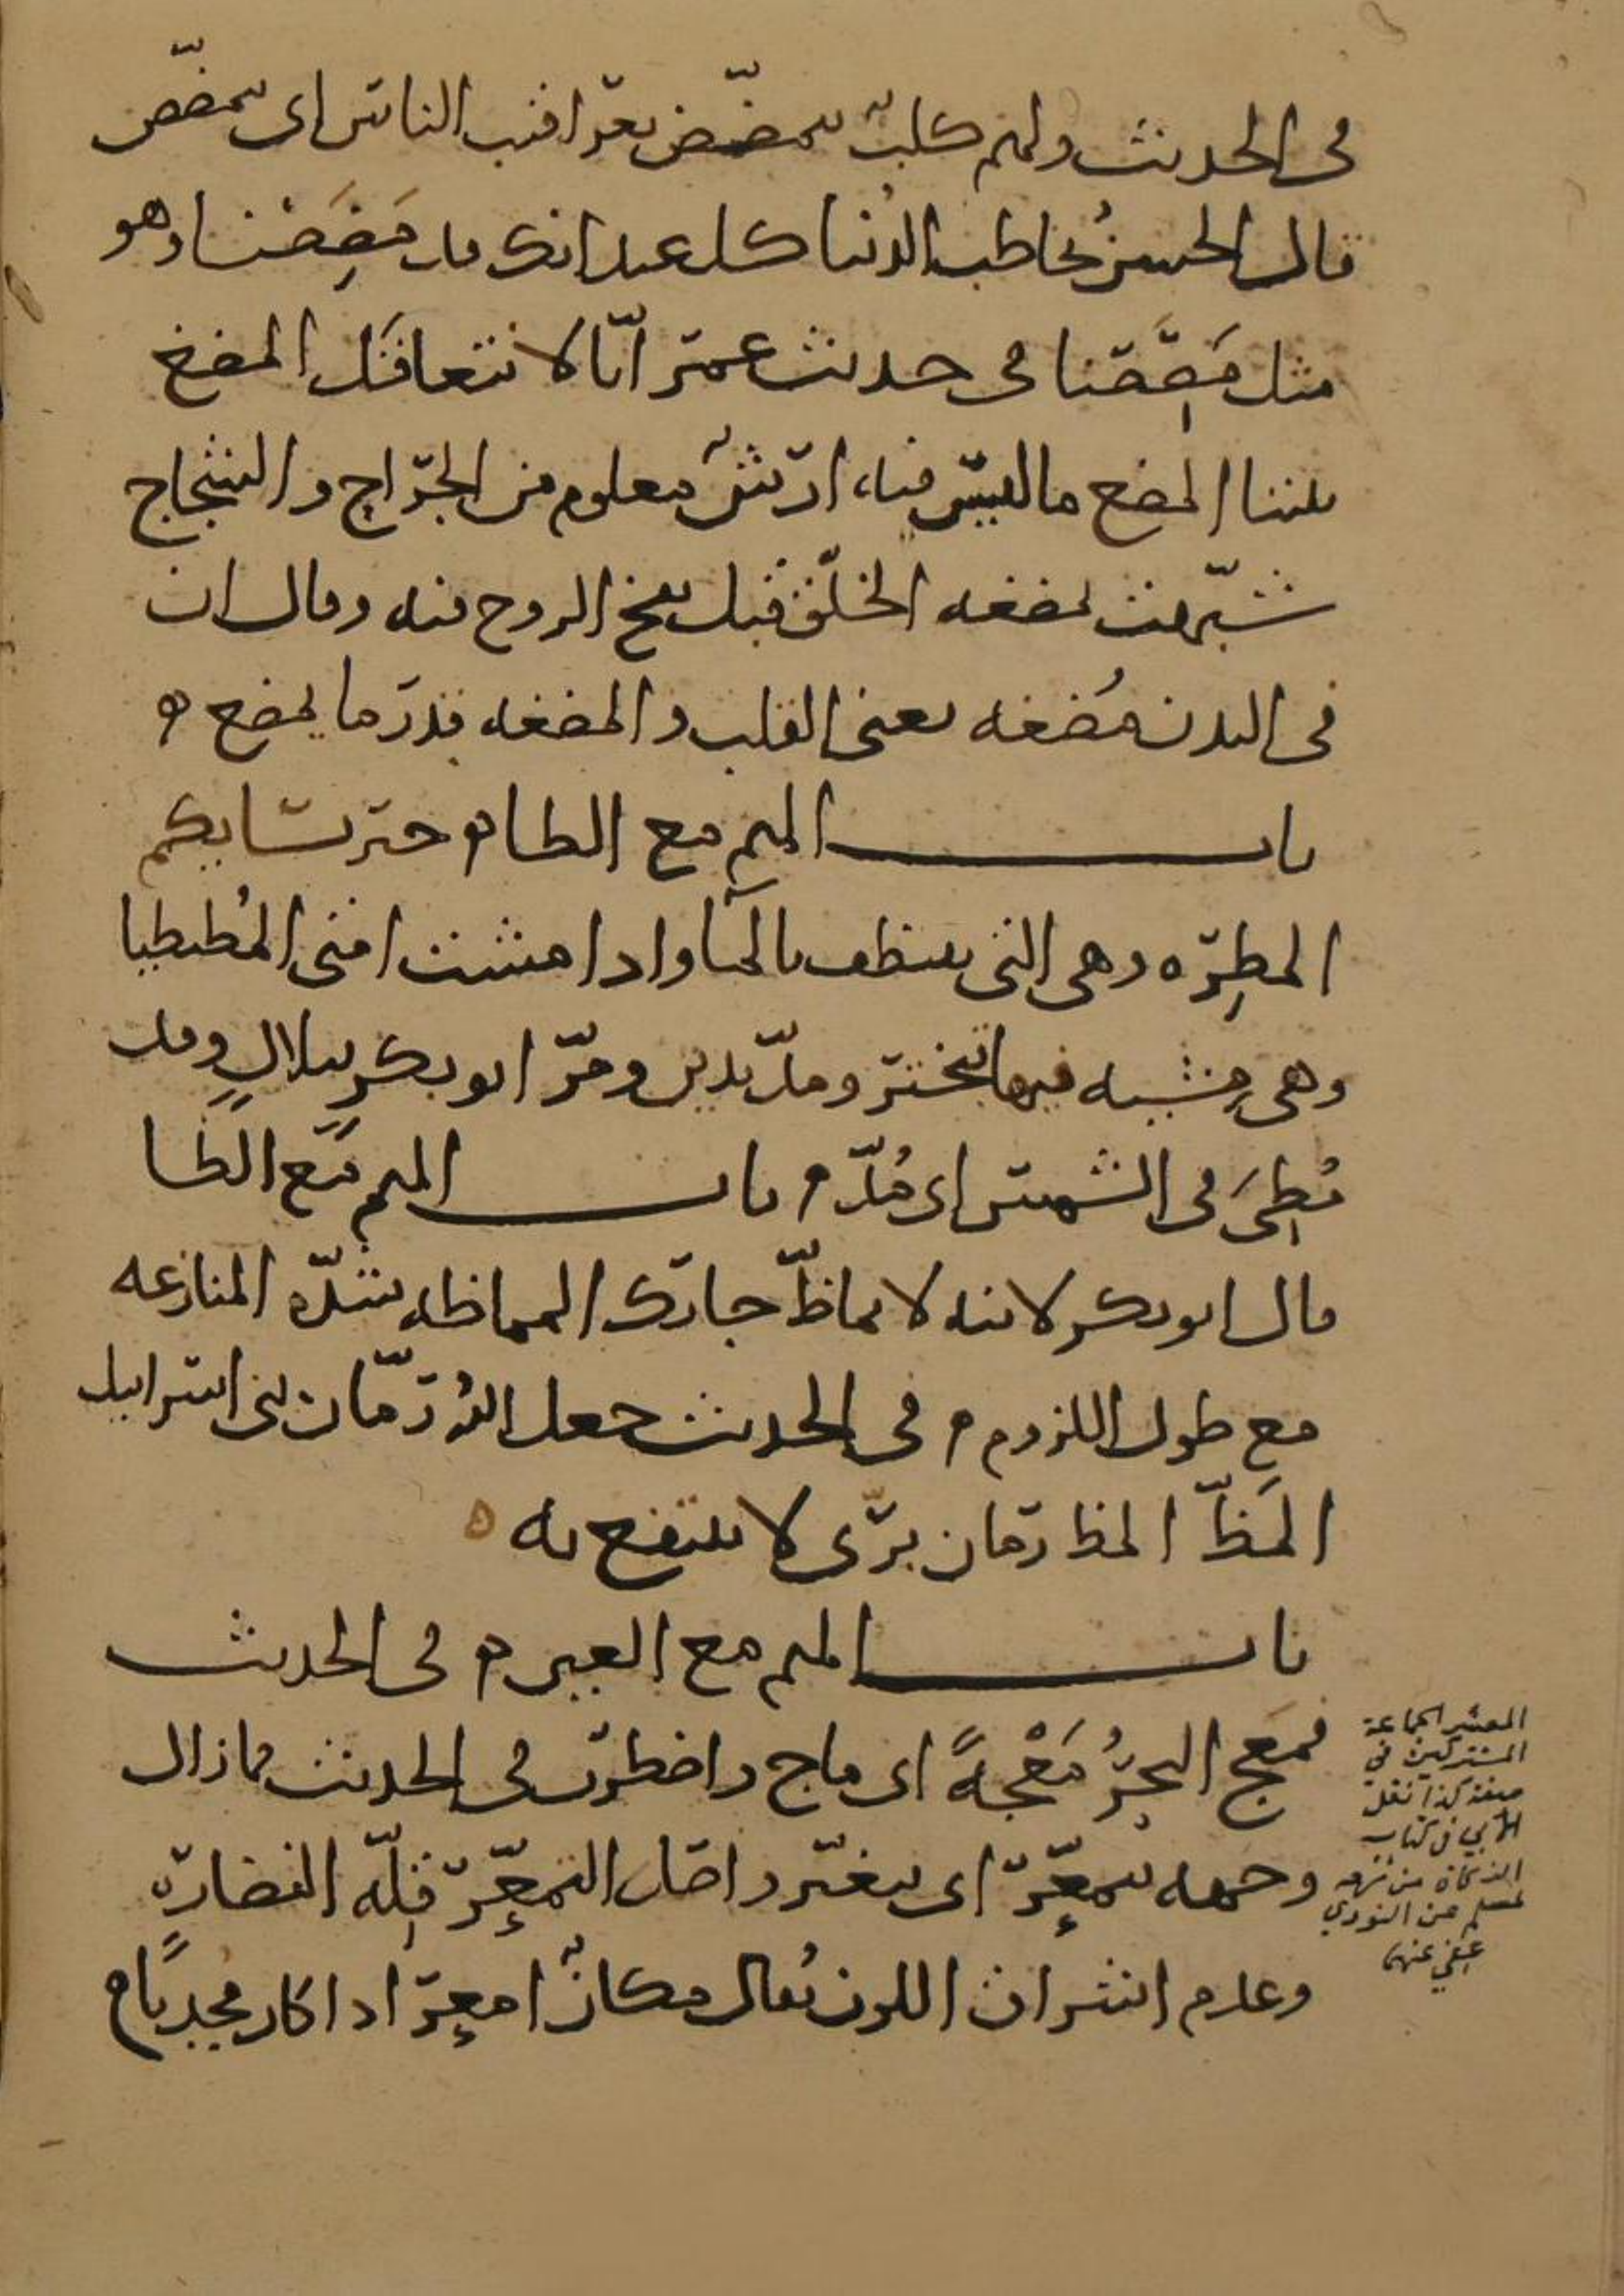 في الحديث ولهم كلب يتمضمض عراقيب الناس اى يمضض
قال الحسن يخاطب الدنيا كل عيدانك قد مضضنا وهو
مثل مصصنا في حديث عمر انا لا نتعاقل المضغ
بيننا المضغ ما ليس فيه ارش معلوم من الجراح والشجاج
شبهت بمضغه الخلق قبل نفخ الروح فيه وقال ان
في البدن مُضغه يعنى القلب والمضغه قدر ما يمضغ ه
باب الميم مع الطا ه خير نسايكم
المطِرّه وهى التى تتنظف بالما واذا مشت امتى المُطيطيا
وهى مِشيه فيها تبختر ومدّ يدين ومرّ ابو بكر ببلالٍ وقد
مُطِىَ في الشمس اى مُدّ ه باب الميم مع الظا
قال ابو بكر لابنه لا تماظّ جارك المماظه شدّه المنازعه
مع طول اللزوم ه في الحديث جعل الله رمّان بنى اسرايل
المَظّ المظ رمان برّى لا ينتفع به ه
باب الميم مع العين ه في الحديث
فمَعَج البحرُ مَعْجهً اى ماج واضطرب في الحديث ما زال
وجهه يتمعّر اى يتغيّر واصل التمعّر قِلّه النضاره
وعدم اشراق اللون يُقال مكانٌ امعر اذا كان مجدبًا ه
المعشر الجماعة
المشتركين في
صفة كذا نقل
الأبي في كتاب
الزكاة من شرحه
لمسلم عن النووي
عفي عنهما